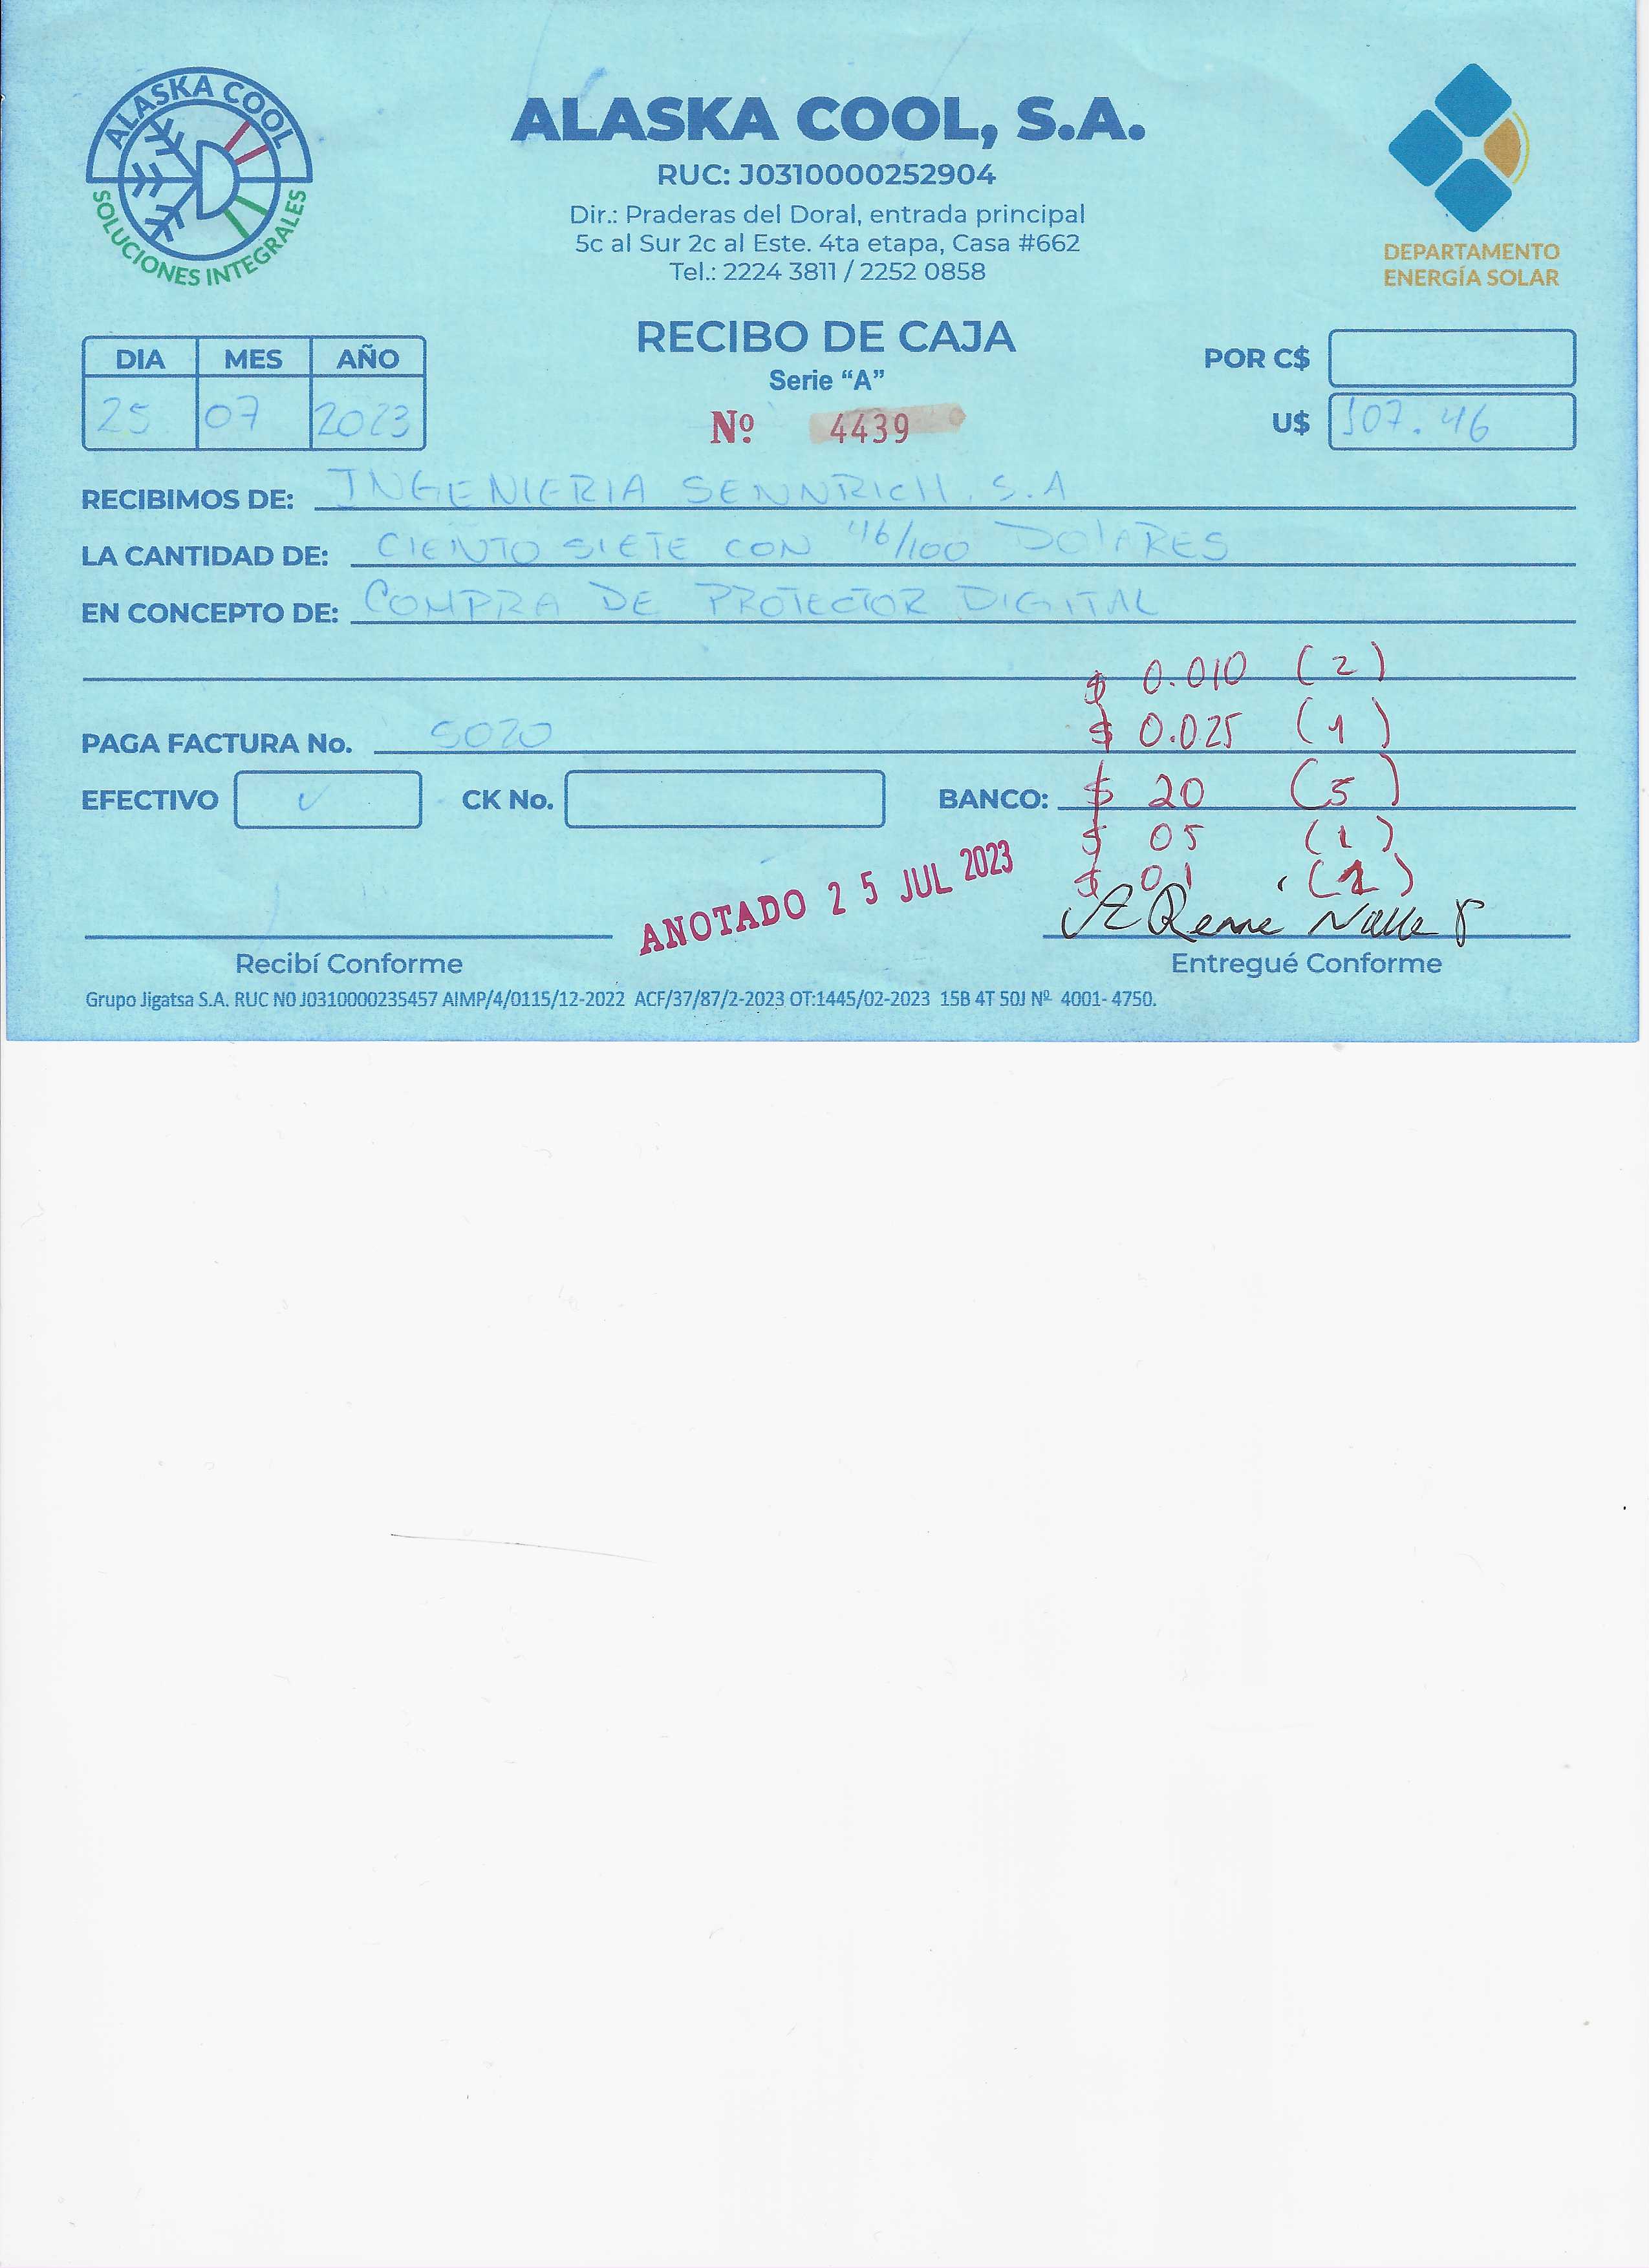 ALASKA COOL
SOLUCIONES INTEGRALES
ALASKA COOL, S.A.
RUC: J0310000252904
Dir.: Praderas del Doral, entrada principal
5c al Sur 2c al Este. 4ta etapa, Casa #662
Tel.: 2224 3811 / 2252 0858
DEPARTAMENTO
ENERGÍA SOLAR
RECIBO DE CAJA
Serie “A”
Nº 4439
DIA MES AÑO
25 07 2023
POR C$
U$ 107.46
RECIBIMOS DE: INGENIERIA SENNRICH. S.A
LA CANTIDAD DE: CIENTO SIETE CON 46/100 DOLARES
EN CONCEPTO DE: COMPRA DE PROTECTOR DIGITAL
$ 0.010 (2)
$ 0.025 (1)
PAGA FACTURA No. 5020
EFECTIVO ✓ CK No. BANCO: $ 20 (5)
$ 05 (1)
$ 01 (1)
ANOTADO 25 JUL 2023
Rene Valle
Recibí Conforme
Entregué Conforme
Grupo Jigatsa S.A. RUC N0 J0310000235457 AIMP/4/0115/12-2022 ACF/37/87/2-2023 OT:1445/02-2023 15B 4T 50J Nº 4001-4750.